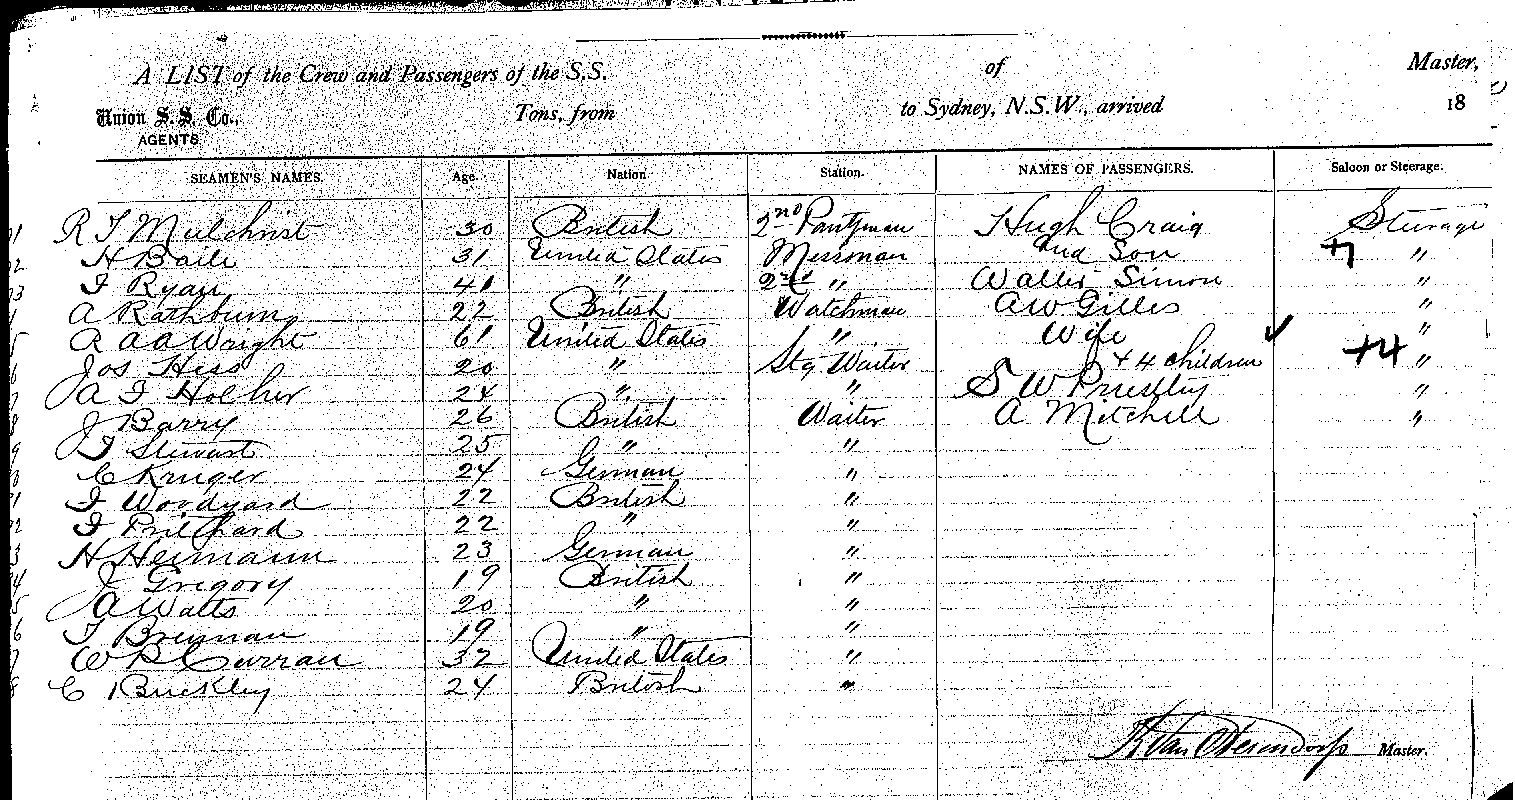 A LIST of the Crew and Passengers of the S.S. of Master,
Union S.S. Co., Tons, from to Sydney, N.S.W., arrived 18
AGENTS
SEAMEN'S NAMES. Age. Nation Station. NAMES OF PASSENGERS. Saloon or Steerage.
R T Mulchrist 30 British 2nd Pantryman Hugh Craig Steerage
H Baile 31 United States Messman and Son +1 "
T Ryan 41 " 2nd " Walter Simon "
A Rathburn 22 British Watchman A W Gilles "
R A A Wright 61 United States " Wife ✓ "
Jos Hess 20 " Stg Waiter + 4 children +4 "
A T Holher 24 " " S W Priestley "
J Barry 26 British Waiter A Mitchell "
T Stewart 25 " "
C Kruger 24 German "
T Woodyard 22 British "
T Pritchard 22 " "
H Heimann 23 German "
J Gregory 19 British "
A Watts 20 " "
T Brennan 19 " "
W B Curran 32 United States "
C Buckley 24 British "
Van Oterendorp Master.